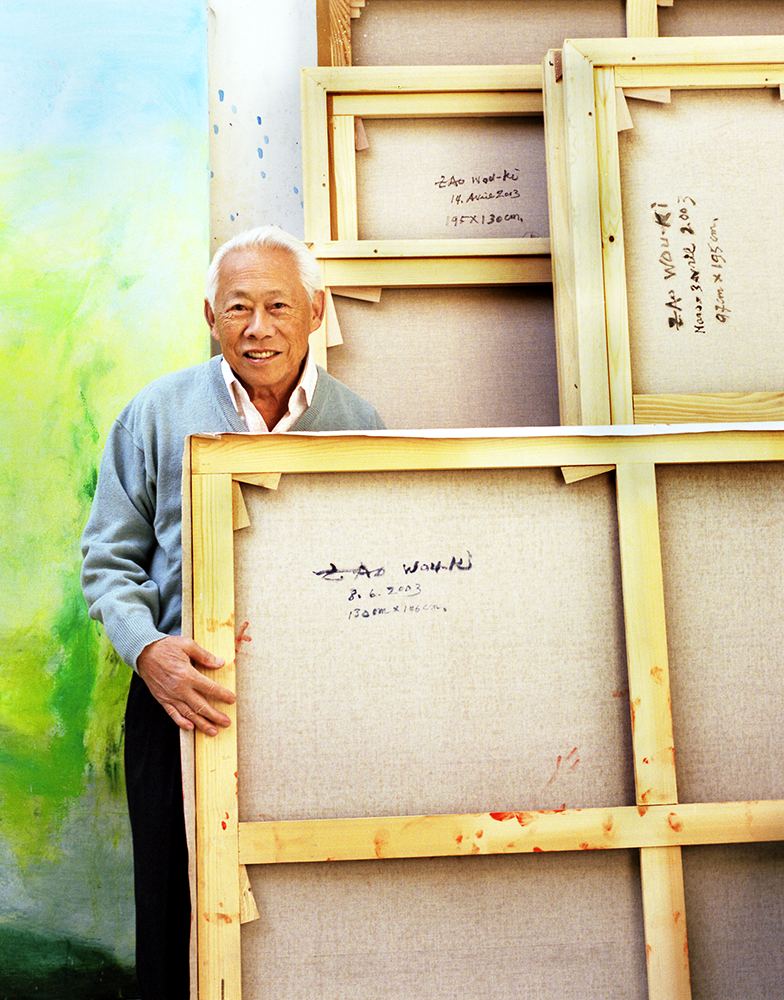 ZAO WOU-Ki
14. Avril 2003
195X130cm.
ZAO WOU-Ki
3 avril 2003
97cm X 195cm.
ZAO WOU-Ki
8. 6. 2003
130cm X